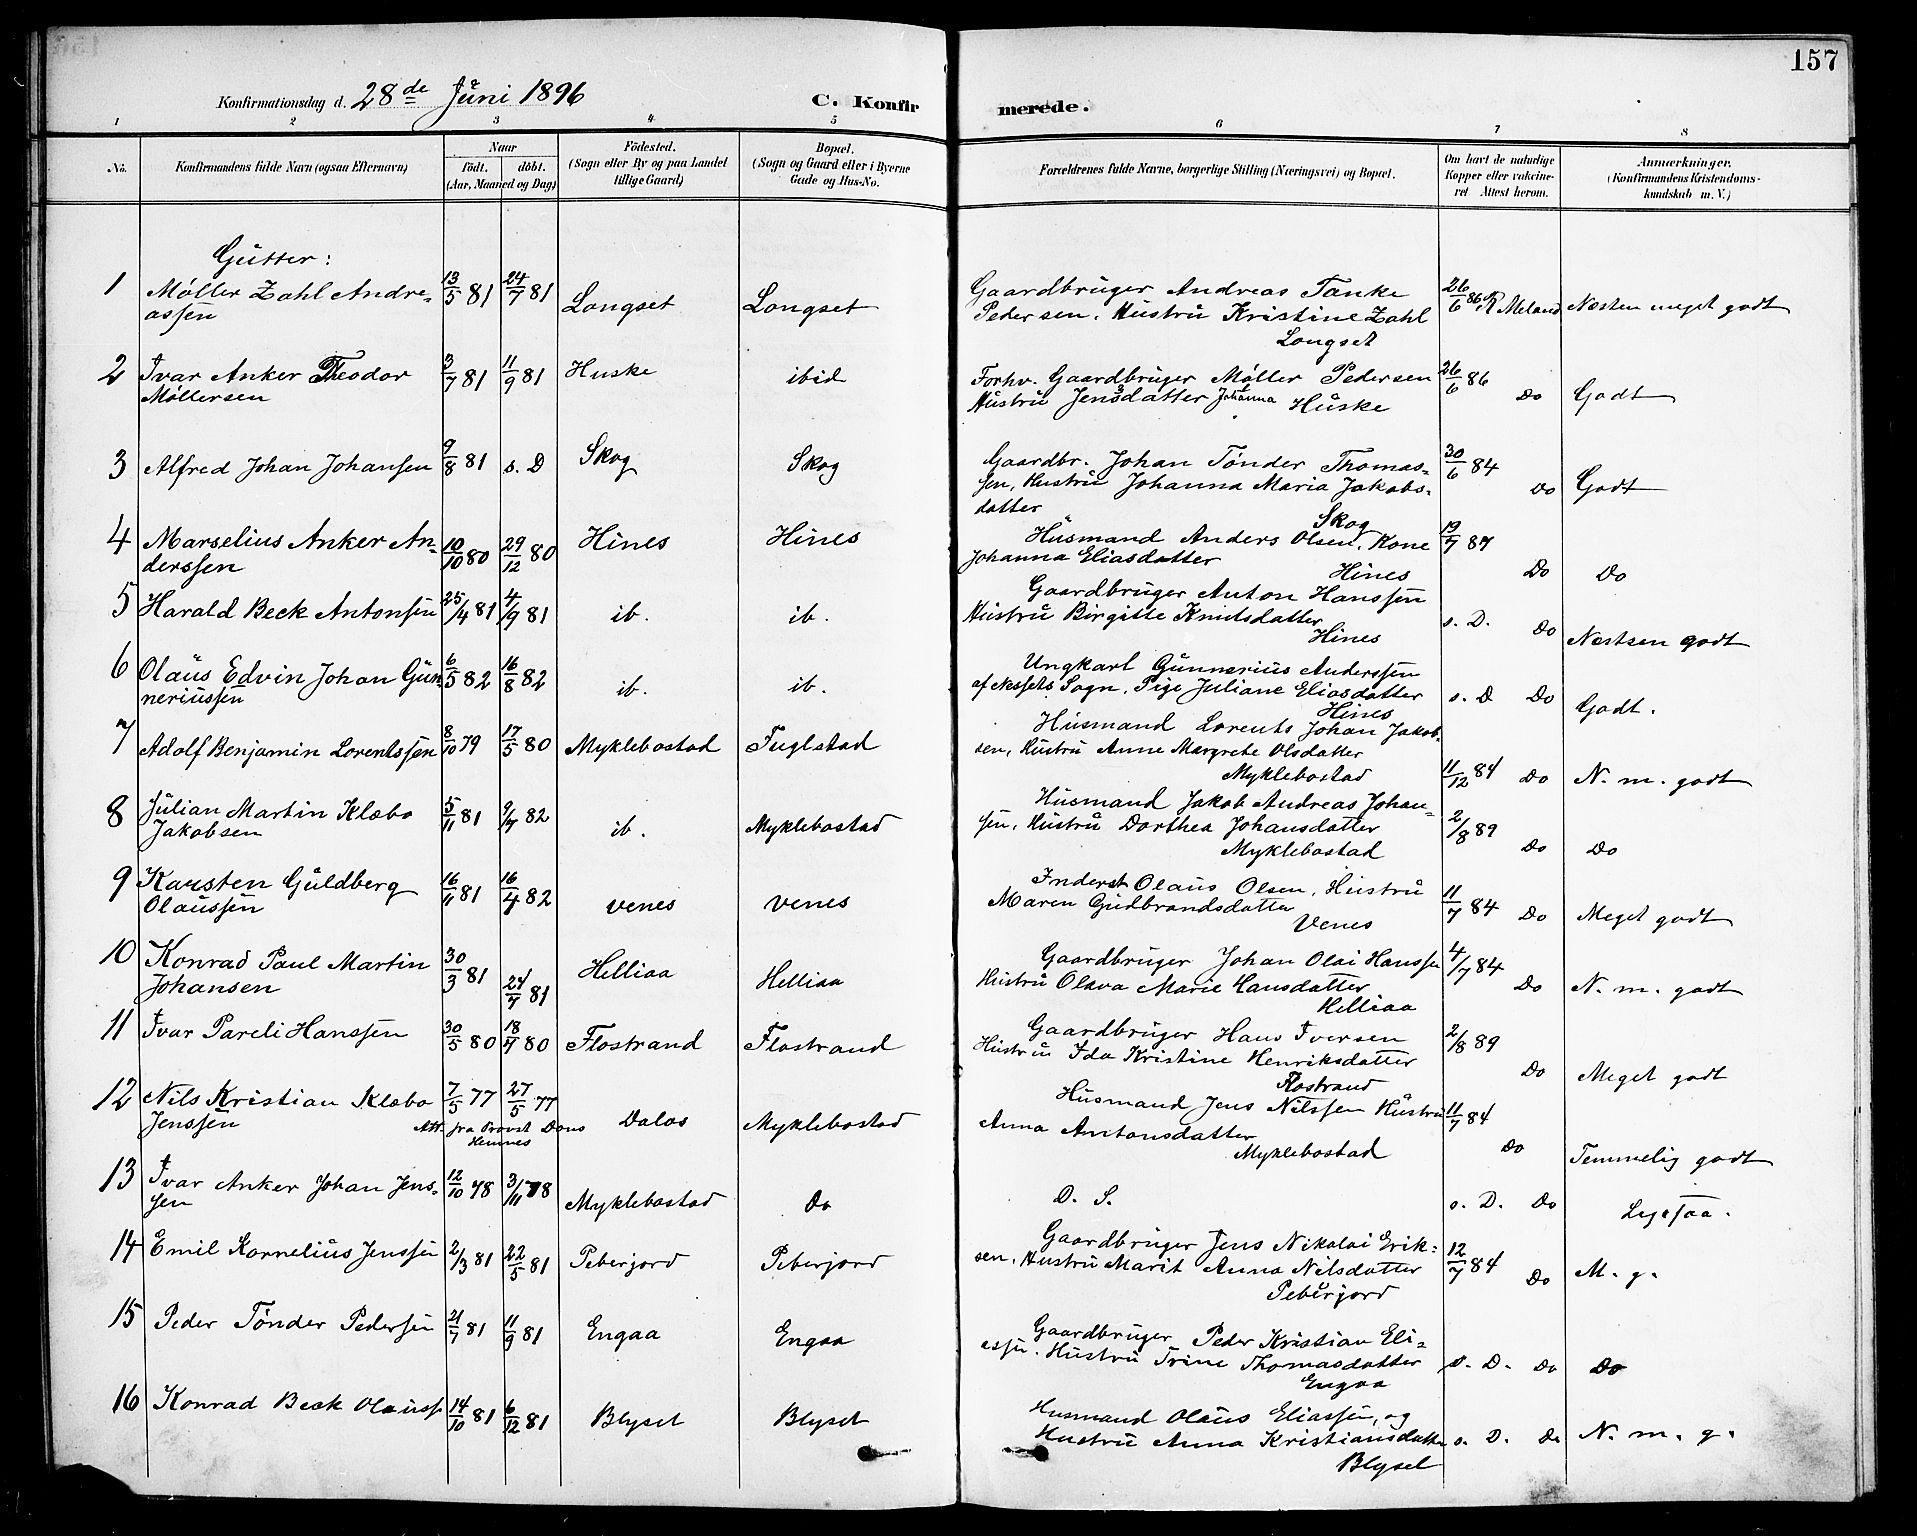 157
Konfirmationsdag d. 28de Juni 1896
C. Konfirmerede.
1 2 3 4 5 6 7 8
No.
Konfirmandens fulde Navn (ogsaa Efternavn)
Naar
födt. döbt.
(Aar, Maaned og Dag)
Födested.
(Sogn eller By og paa Landet
tillige Gaard)
Bopæl.
(Sogn og Gaard eller i Byerne
Gade og Hus-No.
Forældrenes fulde Navne, borgerlige Stilling (Næringsvei) og Bopæl.
Om havt de naturlige
Kopper eller vakcine-
ret Attest herom.
Anmærkninger.
(Konfirmandens Kristendoms-
kundskab m. V.)
Gutter:
1 Møller Zahl Andre-
assen 13/5 81 24/7 81 Longset Longset
Gaardbruger Andreas Tanke
Pedersen, Hustru Kristine Zahl
Longset
26/6 86 Meland Næsten meget godt
2 Ivar Anker Theodor
Møllersen 3/7 81 11/9 81 Huske ibid
Forhv. Gaardbruger Møller Pedersen
Hustru Jensdatter Johanna Huske
26/6 86 Do Godt
3 Alfred Johan Johansen 9/8 81 s. D Skog Skog
Gaardbr. Johan Tønder Thomas-
sen, Hustru Johanna Maria Jakobs-
datter
Skog
30/6 84 Do Godt
4 Marselius Anker An-
derssen 10/10 80 29/12 80 Hines Hines
Husmand Anders Olsen, Kone
Johanna Eliasdatter
Hines
19/7 87 Do Do
5 Harald Beck Antonsen 25/4 81 4/9 81 ib. ib.
Gaardbruger Anton Hanssen
Hustru Birgitte Knutsdatter
Hines
s. D. Do Nestsen godt
6 Olaus Edvin Johan Gun-
neriussen 6/5 82 16/8 82 ib. ib.
Ungkarl Gunnerius Anderssen
af Sogn, Pige Juliane Eliasdatter
Hines
s. D Do Godt.
7 Adolf Benjamin Lorentssen 8/10 79 17/5 80 Myklebostad Fuglstad
Husmand Lorents Johan Jakob-
sen, Hustru Anne Margrete Olsdatter
Myklebostad
11/12 84 Do N. m. godt
8 Julian Martin Klæbo
Jakobsen 5/11 81 9/7 82 ib. Myklebostad
Husmand Jakob Andreas Johan-
sen, Hustru Dorthea Johansdatter
Myklebostad
2/8 89 Do Do
9 Karsten Guldberg
Olaussen 16/11 81 16/4 82 Venes Venes
Inderst Olaus Olsen, Hustru
Maren Gudbrandsdatter
Venes
11/7 84 Do Meget godt
10 Konrad Paul Martin
Johansen 30/3 81 24/7 81 Helliaa Helliaa
Gaardbruger Johan Olai Hanssen
Hustru Olava Marie Hansdatter
Helliaa
4/7 84 Do N. m. godt
11 Ivar Pareli Hanssen 30/5 80 18/7 80 Flostrand Flostrand
Gaardbruger Hans Iversen
Hustru Ida Kristine Henriksdatter
Flostrand
2/8 89 Do Meget godt
12 Nils Kristian Klæbo
Jenssen 7/5 77 27/5 77 Dalos Myklebostad
Att. fra Provst Dons
Hemnes
Husmand Jens Nilssen Hustru
Anna Antonsdatter
Myklebostad
11/7 84 Do Temmelig godt
13 Ivar Anker Johan Jens-
sen 12/10 78 3/11 78 Myklebostad Do
D. S.
s. D. Do Ligesaa.
14 Emil Kornelius Jenssen 2/3 81 22/5 81 Peberjord Peberjord
Gaardbruger Jens Nikolai Erik-
sen, Hustru Marit Anna Nilsdatter
Peberjord
12/7 84 Do M. g.
15 Peder Tønder Pedersen 21/7 81 11/9 81 Engaa Engaa
Gaardbruger Peder Kristian Eli-
essen. Hustru Trine Thomasdatter
Engaa
s. D. Do Do
16 Konrad Beck Olauss 14/10 81 6/12 81 Blyset Blyset
Husmand Olaus Eliassen, og
Hustru Anna Kristiansdatter
Blyset
s. D. Do N. m. g.